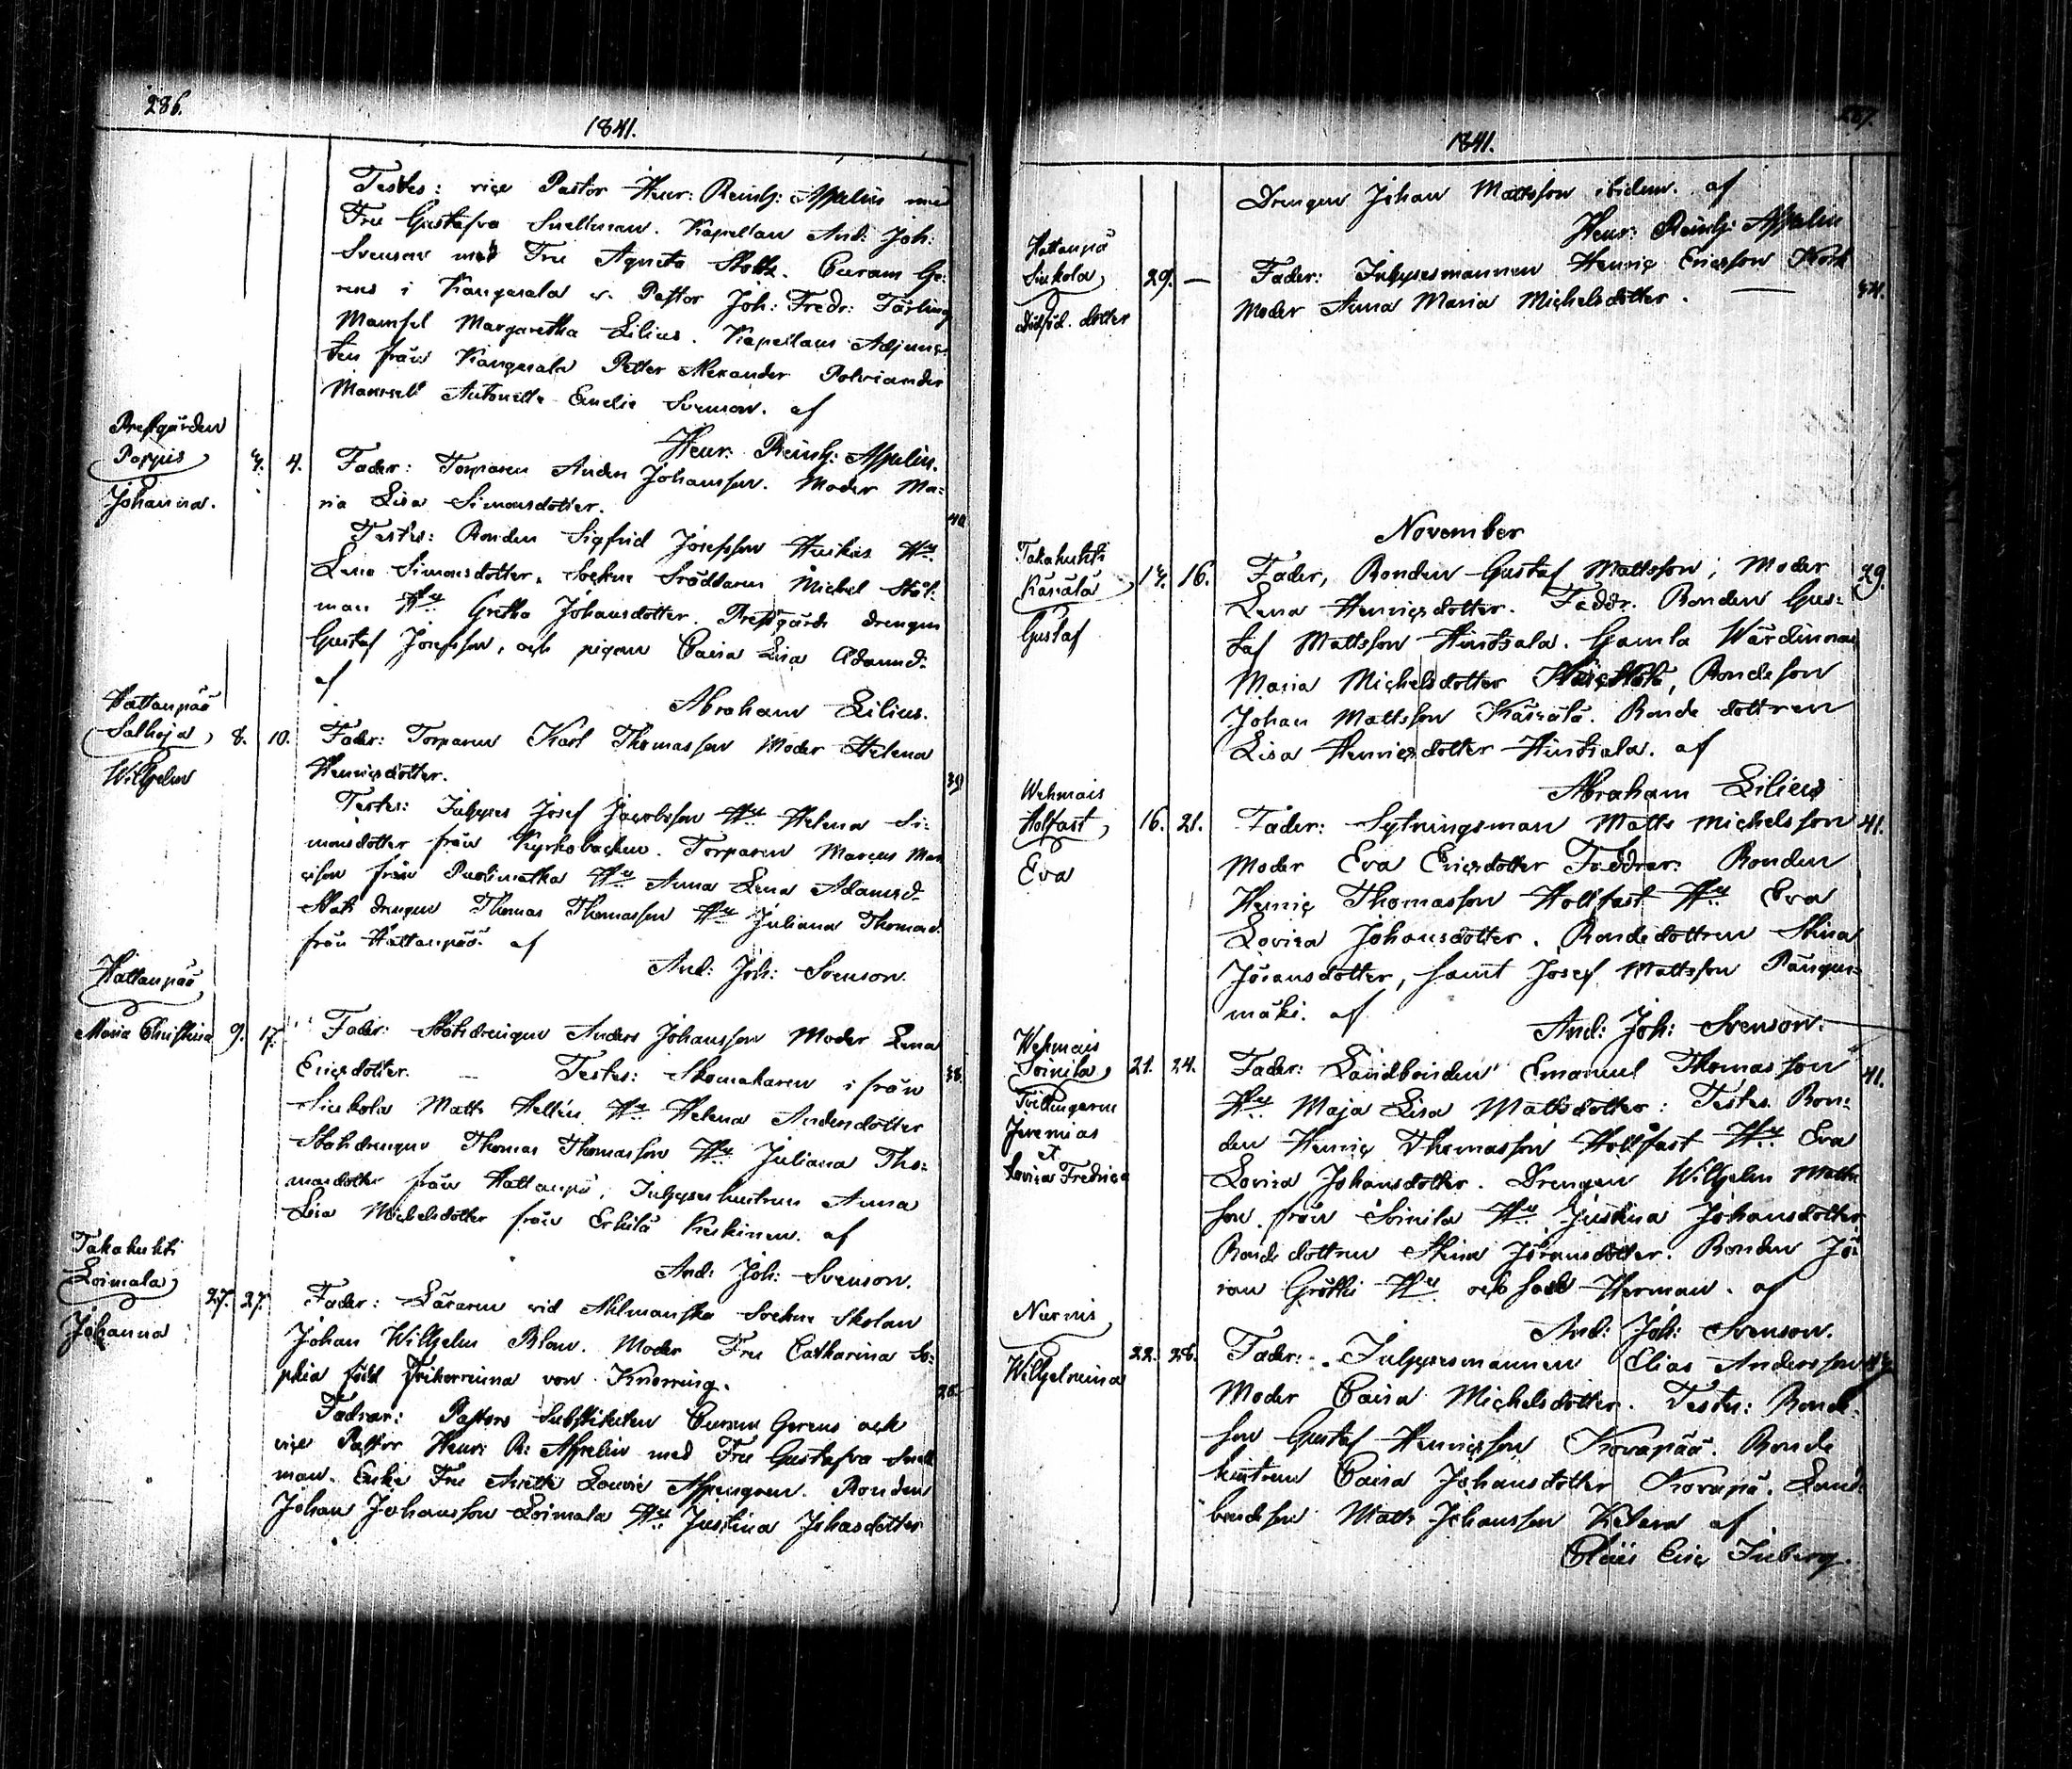 286.
1841.
Testes: vice Pastor Henr: Reinh: Appelin med
Fru Gustafva Snellman. Kapellan And: Joh:
Svenson med Fru Agneta Curam Ge-
rens i Kangasala v. Pastor Joh: Fredr:
Mamsel Margaretha Lilius. Kapellans Adjunc-
ten från Kangasala Petter Alexander Polviander
Mamsell Antonette Emelie Svenson. af
Henr: Reinh: Appelin.
Prestgården
Pappis
Johanna.
3. 4. Fader: Torparen Anders Johansson. Moder Ma-
ria Lisa Simonsdotter. 40
Testes: Bonden Sigfrid Josefsson Huikas Hu
Lena Simonsdotter. Sockne Skräddaren Michel Stål-
man Hu Gretha Johansdotter. Prestgårds drengen
Gustaf Josefsson, och pigan Caisa Lisa Adamsd.
af
Abraham Lilius.
Hattanpää
Salhoja
Wilhelm
8. 10. Fader: Torparen Karl Thomasson Moder Helena
Henricsdotter. 39
Testes: Inhyses Josef Jacobsson Hu Helena Si-
monsdotter från Kyrkobacken. Torparen Marcus
från Hu Anna Lena Adamsd.
Stats drengen Thomas Thomasson Hu Juliana Thomasd.
från Hattanpää. af
And: Joh: Svenson.
Hattanpää
Maria Christina
9. 17. Fader: Statsdrengen Anders Johansson Moder Lena
Ericsdotter. — Testes: Skomakaren i från 38
Sinkola Matts Hellén Hu Helena Andersdotter
Statsdrengen Thomas Thomasson Hu Juliana Tho-
masdotter från Hattanpä, Inhyseshustrun Anna
Lisa Michelsdotter från Erkilä Keskinen. af
And: Joh: Svenson.
Takahuhti
Loimala
Johanna
27. 27. Fader: Läraren vid Ahlmanska Sockne Skolan
Johan Wilhelm Blom. Moder Fru Catharina So-
phia född Friherrinna von Knorring. 26
Fadrar: Pastors Substituten Curam Gerens och
vice Pastor Henr: R: Appelin med Fru Gustafva Snell
man. Enke Fru Lovise Aspengren. Bonden
Johan Johansson Loimala Hu Justina Johasdotter
1841.
Drengen Johan Mattsson ibidem. af
Henr: Reinh: Appelin
Hattanpä
Sinkola
Dödföd. dotter
29. — Fader: Inhysesmannen Henric Ericsson Kork 34.
Moder Anna Maria Michelsdotter. —
November
Takahuhti
Käsälä
Gustaf
14. 16. Fader, Bonden Gustaf Mattsson; Moder 29.
Lena Henricsdotter. Faddr. Bonden Gus-
taf Mattsson Hintsala. Gamla Wärdinnan
Maria Michelsdotter Bondeson
Johan Mattsson Käsälä. Bonde dottren
Lisa Henricsdotter Hintsala. af
Abraham Lilius
Wehmais
Holfast
Eva
16. 21. Fader: Sytningsman Matts Michelsson 41.
Moder Eva Ericsdotter Faddrar: Bonden
Henric Thomasson Hollfast Hu Eva
Lovisa Johansdotter. Bondedottren Stina
Jöransdotter, samt Josef Mattsson
mäki. af
And: Joh: Svenson.
Wehmais
Soinila
Tvillingarne
Jeremias
&
Lovisa Fredrica
21. 24. Fader: Landbonden Emanuel Thomasson 41.
Hu Maja Lisa Mattsdotter: Testes. Bon-
den Henric Thomasson Hollfast Hu Eva
Lovisa Johansdotter. Drengen Wilhelm Matts
son från Soinila Hu Justina Johansdotter
Bonde dottren Stina Jöransdotter. Bonden Jö-
ran Hu och Herman. af
And: Joh: Svenson.
Nurmis
Wilhelmina
22. 28. Fader: Inhysesmannen Elias Andersson
Moder Caisa Michelsdotter. Testes: Bonde-
son Gustaf Henricsson Kovapää. Bonde
hustrun Caisa Johansdotter Kovapä. Land-
bondeson Matts Johansson Ketara af
Eric